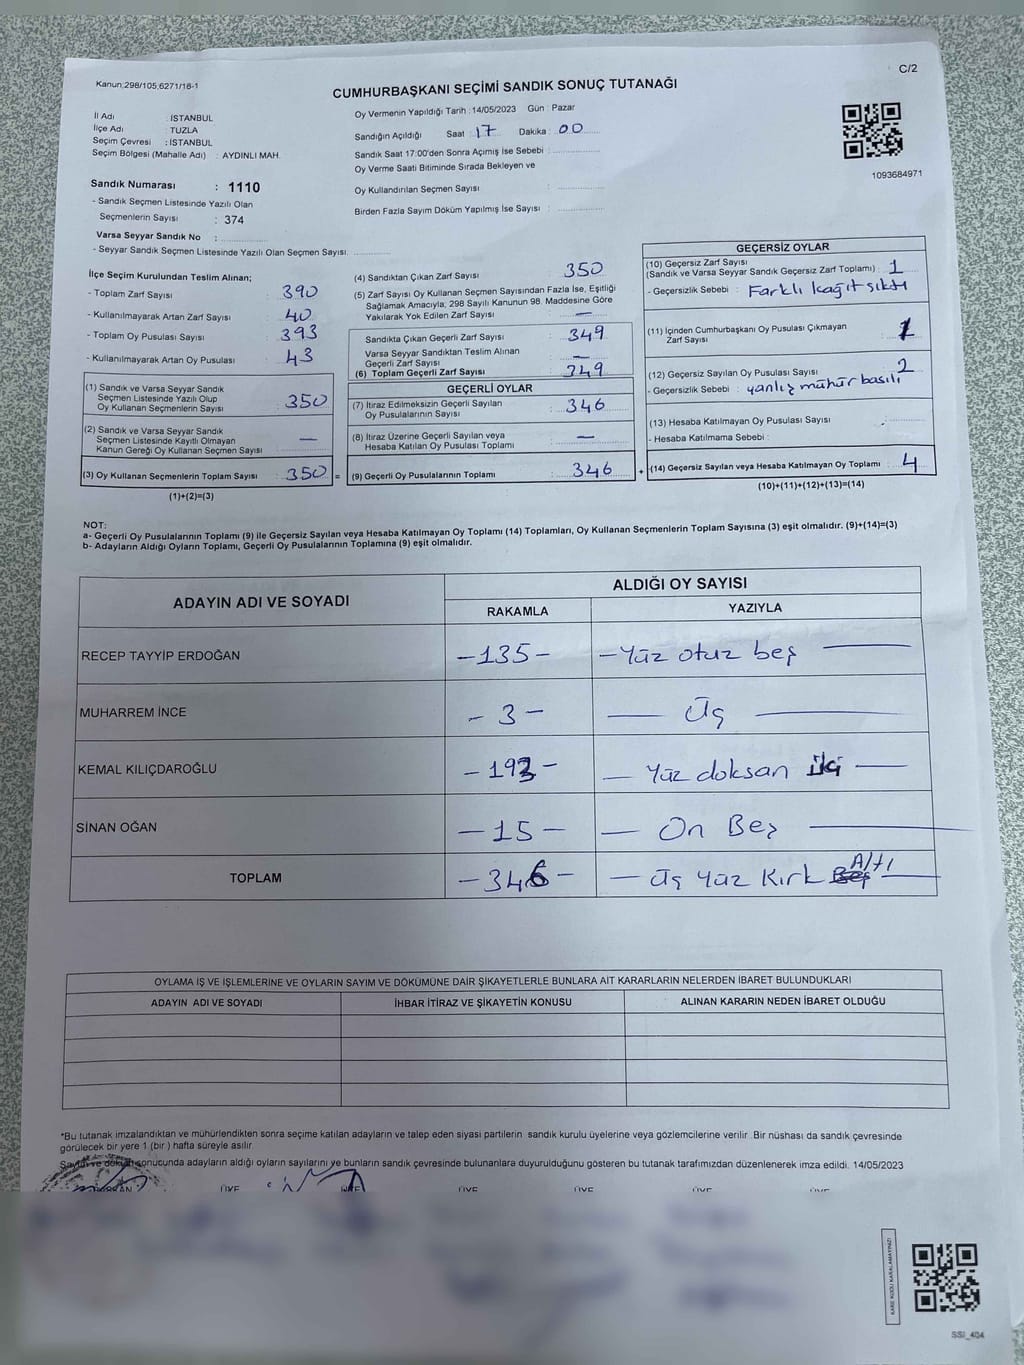 Kanun;298/105;6271/18-1
C/2
CUMHURBAŞKANI SEÇİMİ SANDIK SONUÇ TUTANAĞI
İl Adı : İSTANBUL
İlçe Adı : TUZLA
Seçim Çevresi : İSTANBUL
Seçim Bölgesi (Mahalle Adı) : AYDINLI MAH.
Sandık Numarası : 1110
- Sandık Seçmen Listesinde Yazılı Olan
Seçmenlerin Sayısı : 374
Varsa Seyyar Sandık No :
- Seyyar Sandık Seçmen Listesinde Yazılı Olan Seçmen Sayısı
Oy Vermenin Yapıldığı Tarih : 14/05/2023 Gün : Pazar
Sandığın Açıldığı Saat : 17 Dakika : 00
Sandık Saat 17:00'den Sonra Açımış İse Sebebi :
Oy Verme Saati Bitiminde Sırada Bekleyen ve
Oy Kullandırılan Seçmen Sayısı :
Birden Fazla Sayım Döküm Yapılmış İse Sayısı :
1093684971
İlçe Seçim Kurulundan Teslim Alınan;
- Toplam Zarf Sayısı : 390
- Kullanılmayarak Artan Zarf Sayısı : 40
- Toplam Oy Pusulası Sayısı : 393
- Kullanılmayarak Artan Oy Pusulası : 43
(1) Sandık ve Varsa Seyyar Sandık
Seçmen Listesinde Yazılı Olup
Oy Kullanan Seçmenlerin Sayısı : 350
(2) Sandık ve Varsa Seyyar Sandık
Seçmen Listesinde Kayıtlı Olmayan
Kanun Gereği Oy Kullanan Seçmen Sayısı : —
(3) Oy Kullanan Seçmenlerin Toplam Sayısı : 350 =
(1)+(2)=(3)
(4) Sandıktan Çıkan Zarf Sayısı : 350
(5) Zarf Sayısı Oy Kullanan Seçmen Sayısından Fazla İse, Eşitliği
Sağlamak Amacıyla; 298 Sayılı Kanunun 98. Maddesine Göre
Yakılarak Yok Edilen Zarf Sayısı : —
Sandıkta Çıkan Geçerli Zarf Sayısı : 349
Varsa Seyyar Sandıktan Teslim Alınan
Geçerli Zarf Sayısı : —
(6) Toplam Geçerli Zarf Sayısı : 349
GEÇERLİ OYLAR
(7) İtiraz Edilmeksizin Geçerli Sayılan
Oy Pusulalarının Sayısı : 346
(8) İtiraz Üzerine Geçerli Sayılan veya
Hesaba Katılan Oy Pusulası Toplamı : —
(9) Geçerli Oy Pusulalarının Toplamı : 346 +
GEÇERSİZ OYLAR
(10) Geçersiz Zarf Sayısı
(Sandık ve Varsa Seyyar Sandık Geçersiz Zarf Toplamı) : 1
- Geçersizlik Sebebi : Farklı kağıt çıktı
(11) İçinden Cumhurbaşkanı Oy Pusulası Çıkmayan
Zarf Sayısı : 1
(12) Geçersiz Sayılan Oy Pusulası Sayısı : 2
- Geçersizlik Sebebi : yanlış mühür basılı
(13) Hesaba Katılmayan Oy Pusulası Sayısı :
- Hesaba Katılmama Sebebi :
(14) Geçersiz Sayılan veya Hesaba Katılmayan Oy Toplamı : 4
(10)+(11)+(12)+(13)=(14)
NOT:
a- Geçerli Oy Pusulalarının Toplamı (9) ile Geçersiz Sayılan veya Hesaba Katılmayan Oy Toplamı (14) Toplamları, Oy Kullanan Seçmenlerin Toplam Sayısına (3) eşit olmalıdır. (9)+(14)=(3)
b- Adayların Aldığı Oyların Toplamı, Geçerli Oy Pusulalarının Toplamına (9) eşit olmalıdır.
ADAYIN ADI VE SOYADI
ALDIĞI OY SAYISI
RAKAMLA YAZIYLA
RECEP TAYYİP ERDOĞAN -135- - Yüz otuz beş —
MUHARREM İNCE - 3 - — Üç —
KEMAL KILIÇDAROĞLU - 193 - — Yüz doksan iki —
SİNAN OĞAN - 15 - — On Beş —
TOPLAM - 346 - — Üç Yüz Kırk Altı —
OYLAMA İŞ VE İŞLEMLERİNE VE OYLARIN SAYIM VE DÖKÜMÜNE DAİR ŞİKAYETLERLE BUNLARA AİT KARARLARIN NELERDEN İBARET BULUNDUKLARI
ADAYIN ADI VE SOYADI İHBAR İTİRAZ VE ŞİKAYETİN KONUSU ALINAN KARARIN NEDEN İBARET OLDUĞU
*Bu tutanak imzalandıktan ve mühürlendikten sonra seçime katılan adayların ve talep eden siyasi partilerin sandık kurulu üyelerine veya gözlemcilerine verilir. Bir nüshası da sandık çevresinde
görülecek bir yere 1 (bir) hafta süreyle asılır.
Sayım ve döküm sonucunda adayların aldığı oyların sayılarını ve bunların sandık çevresinde bulunanlara duyurulduğunu gösteren bu tutanak tarafımızdan düzenlenerek imza edildi. 14/05/2023
BAŞKAN ÜYE ÜYE ÜYE ÜYE ÜYE ÜYE
KARE KODU KARALAMAYINIZ!
SSI_404